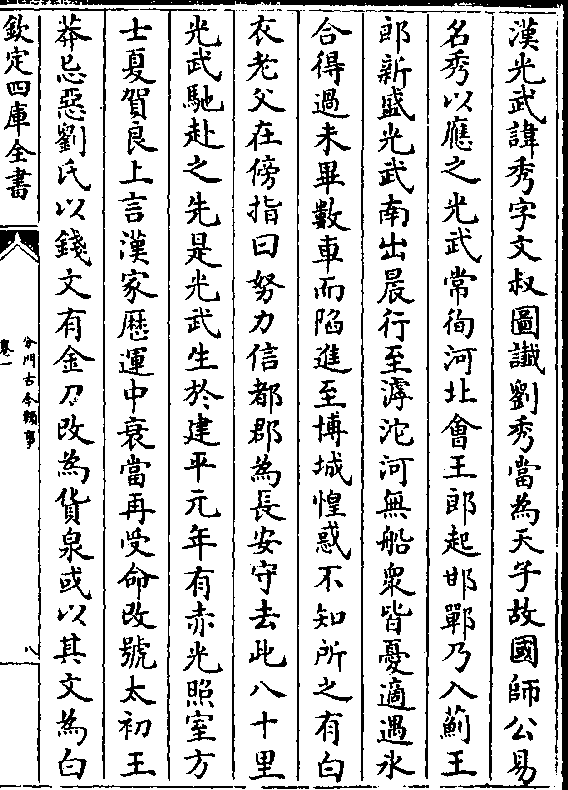 漢光武諱秀字文叔圖䜟劉秀當為天子故國師公易
名秀以應之光武常徇河北㑹王郎起邯鄲乃入薊王
郎新盛光武南出晨行至滹沱河無船衆皆憂適遇氷
合得過未畢數車而陷進至博城惶惑不知所之有白
衣老父在傍指曰努力信都郡為長安守去此八十里
光武馳赴之先是光武生於建平元年有赤光照室方
士夏賀良上言漢家歴運中衰當再受命改號太初王
莽忌惡劉氏以錢文有金刀改為貨泉或以其文為白
欽定四庫全書
分門古今類事
卷一
八